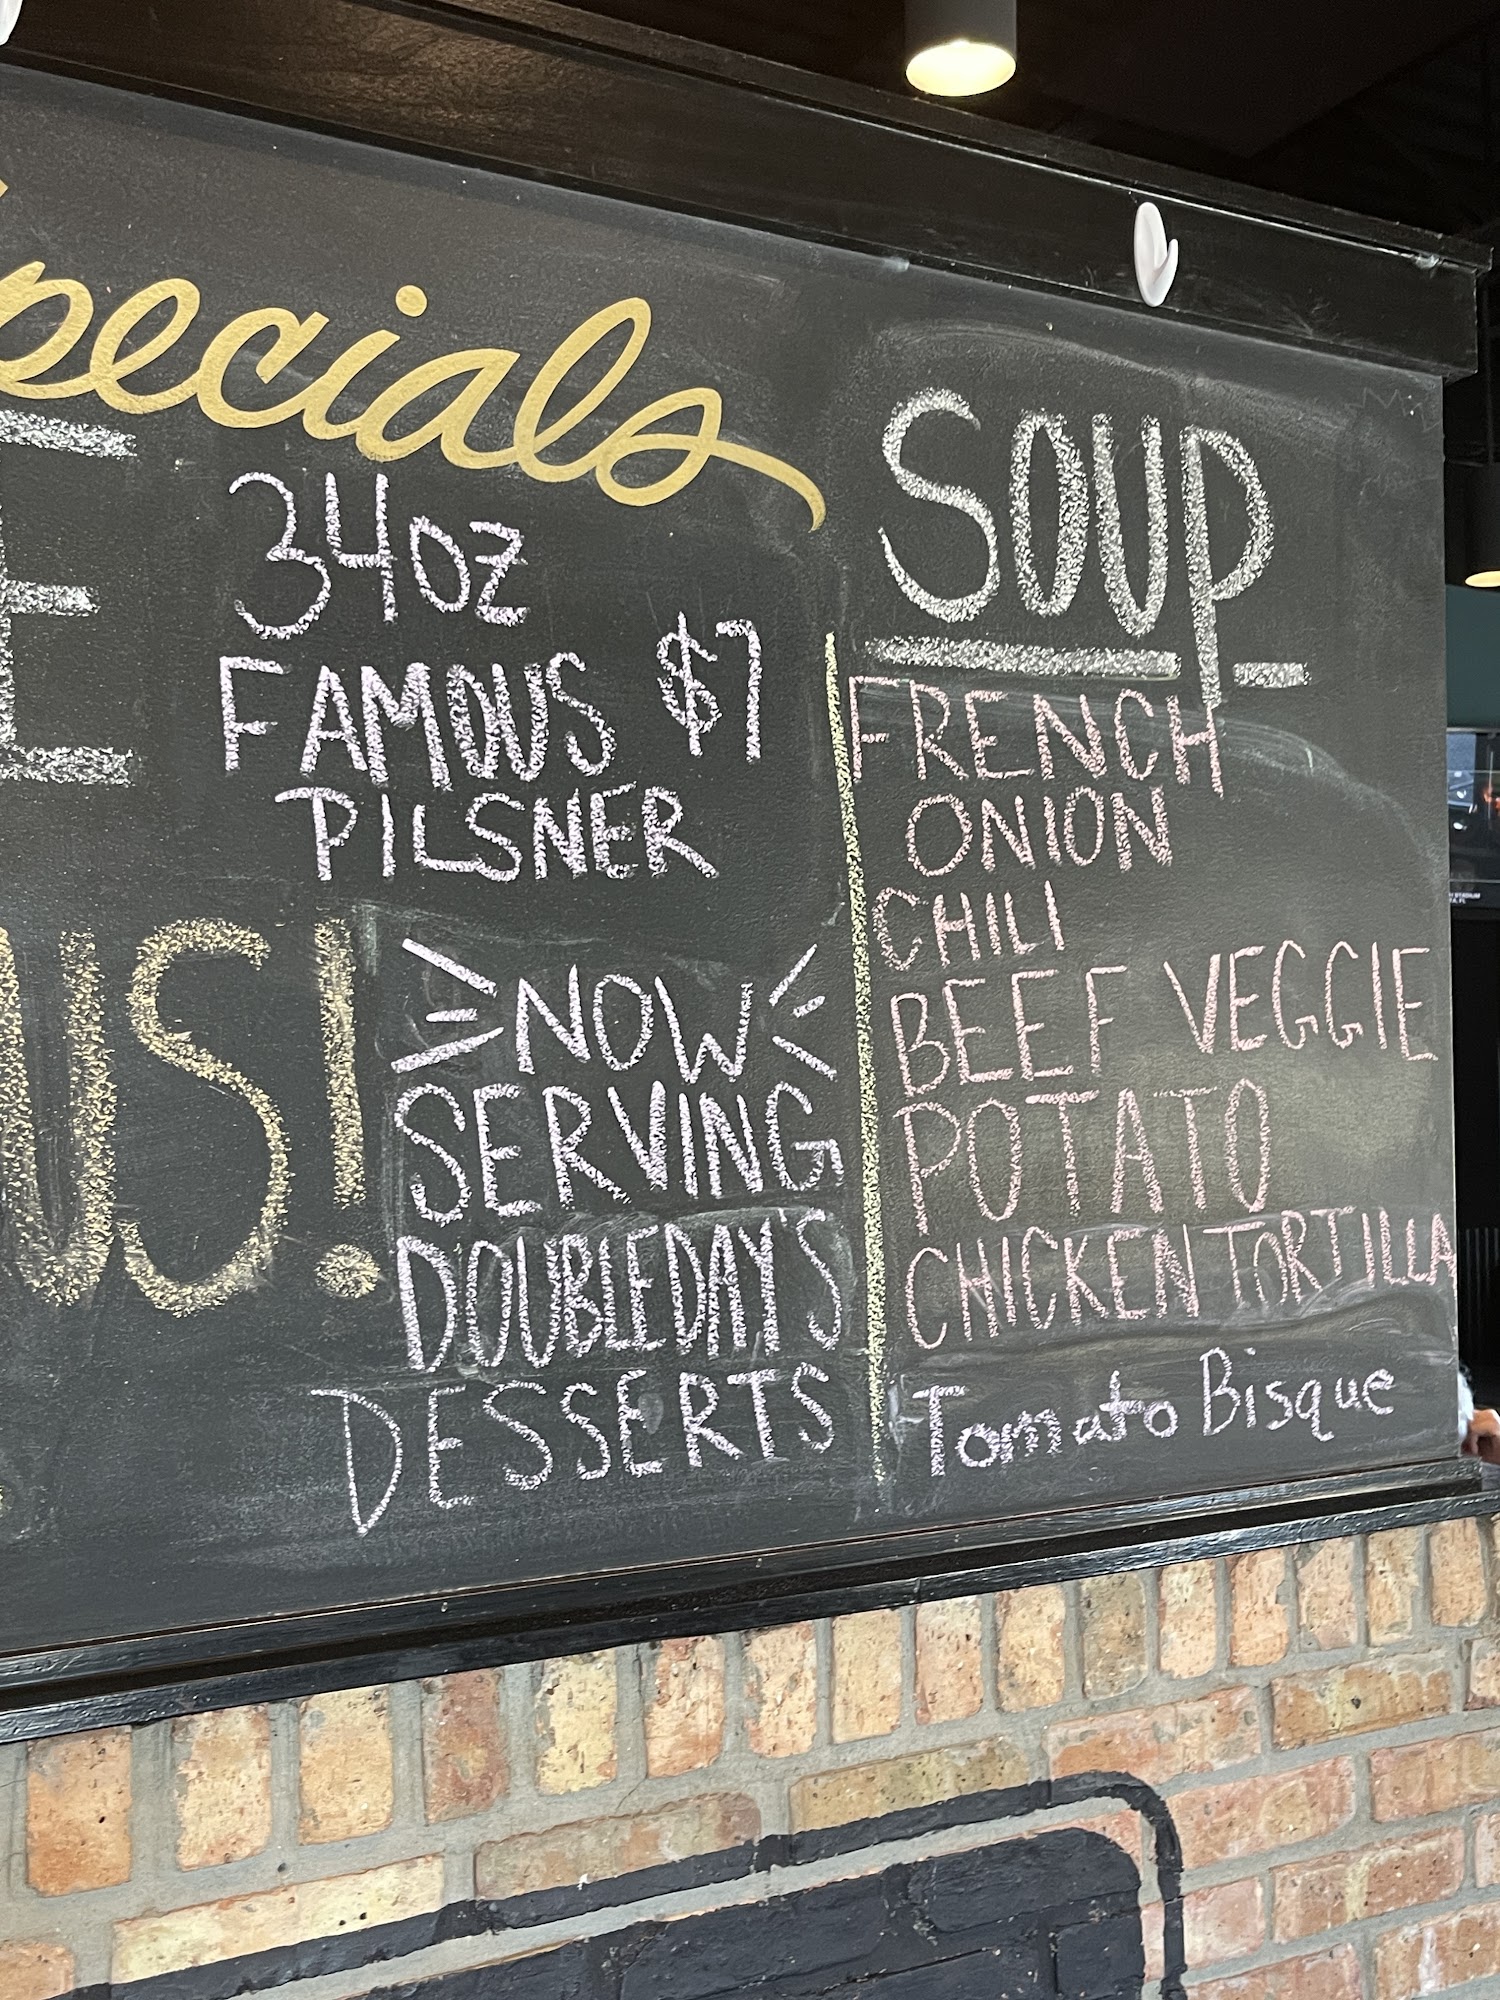 Specials
34oz
FAMOUS $7
PILSNER
US!
NOW
SERVING
DOUBLEDAY'S
DESSERTS
SOUP
FRENCH
ONION
CHILI
BEEF VEGGIE
POTATO
CHICKEN TORTILLA
Tomato Bisque